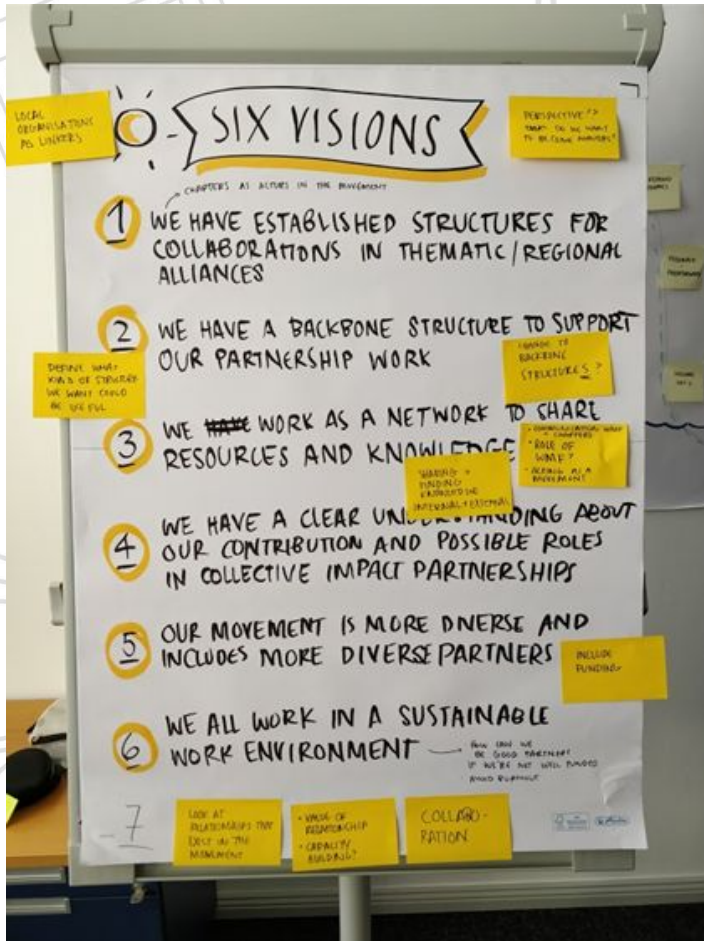 LOCAL
ORGANISATIONS
AS LINKERS
SIX VISIONS
PERSPECTIVE??
DO WE WANT
TO BECOME
CHAPTERS AS ACTORS IN THE MOVEMENT
1 WE HAVE ESTABLISHED STRUCTURES FOR
COLLABORATIONS IN THEMATIC/REGIONAL
ALLIANCES
2 WE HAVE A BACKBONE STRUCTURE TO SUPPORT
OUR PARTNERSHIP WORK
CHANGE TO
BACKBONE
STRUCTURES?
DEFINE WHAT
KIND OF STRUCTURE
WE WANT COULD
BE USEFUL
3 WE HAVE WORK AS A NETWORK TO SHARE
RESOURCES AND KNOWLEDGE
CHAPTERS
• ROLE OF
WMF?
• ACTING AS A
MOVEMENT
SHARING +
FUNDING
KNOWLEDGE
INTERNAL + EXTERNAL
4 WE HAVE A CLEAR UNDERSTANDING ABOUT
OUR CONTRIBUTION AND POSSIBLE ROLES
IN COLLECTIVE IMPACT PARTNERSHIPS
5 OUR MOVEMENT IS MORE DIVERSE AND
INCLUDES MORE DIVERSE PARTNERS
INCLUDE
FUNDING
6 WE ALL WORK IN A SUSTAINABLE
WORK ENVIRONMENT
HOW CAN WE
BE GOOD PARTNERS
IF WE'RE NOT WELL FUNDED
AVOID BURNOUT
7
LOOK AT
RELATIONSHIPS THAT
EXIST IN THE
MOVEMENT
• VALUE OF
RELATIONSHIP
• CAPACITY
BUILDING?
COLLABO-
RATION